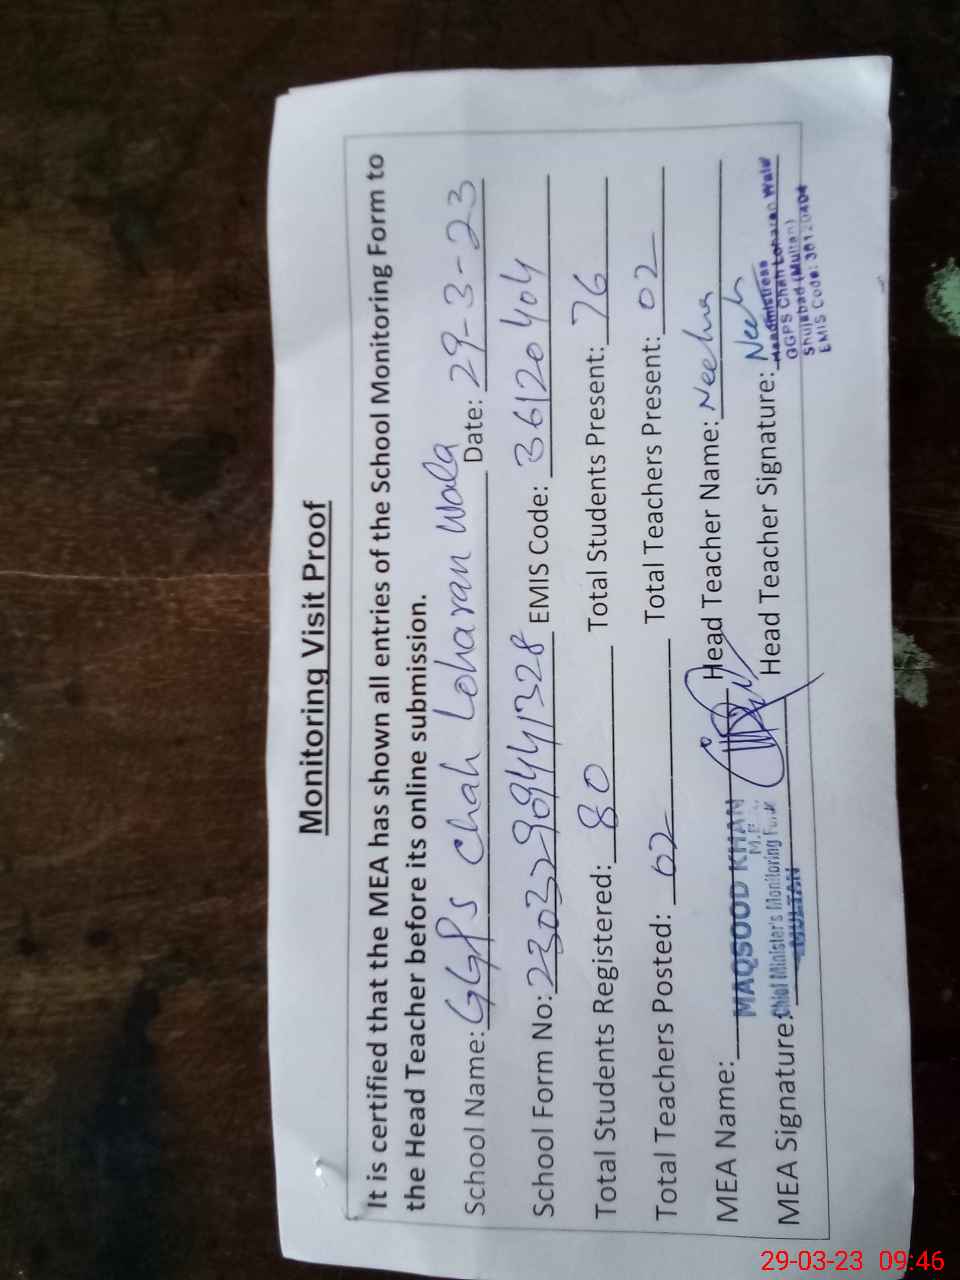 Monitoring Visit Proof
It is certified that the MEA has shown all entries of the School Monitoring Form to
the Head Teacher before its online submission.
School Name: GGPS Chah Loharan Wala Date: 29-3-23
School Form No: EMIS Code: 36120404
Total Students Registered: 80 Total Students Present: 76
Total Teachers Posted: 02 Total Teachers Present: 02
MEA Name: MAQSOOD KHAN Head Teacher Name:
Chief Minister's Monitoring Force
MULTAN
MEA Signature: Head Teacher Signature:
Headmistress
GGPS Chah Loharan Wala
Shujabad (Multan)
EMIS Code: 36120404
29-03-23 09:46